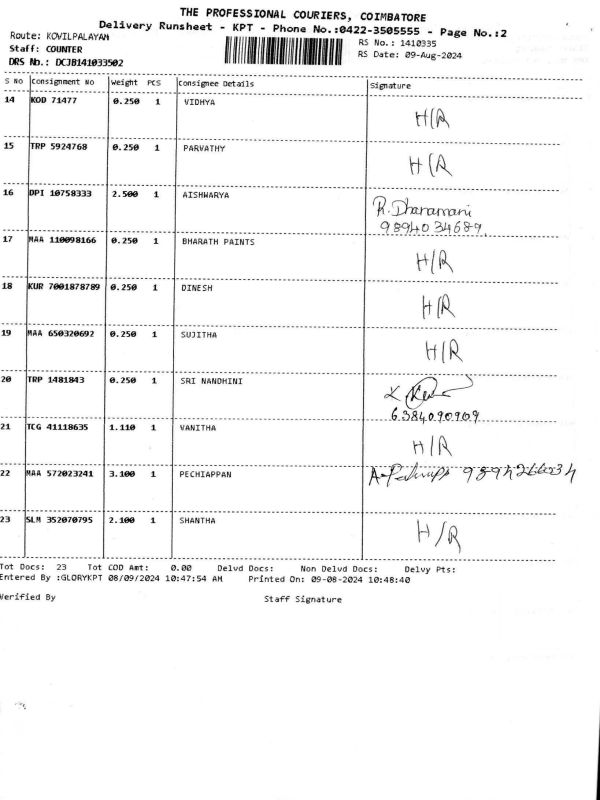 THE PROFESSIONAL COURIERS, COIMBATORE
Delivery Runsheet - KPT - Phone No.:0422-3505555 - Page No.:2
Route: KOVILPALAYAM
RS No.: 1410335
Staff: COUNTER
RS Date: 09-Aug-2024
DRS No.: DCJB141033502
S No Consignment No Weight PCS Consignee Details Signature
14 KOD 71477 0.250 1 VIDHYA H/R
15 TRP 5924768 0.250 1 PARVATHY H/R
16 DPI 10758333 2.500 1 AISHWARYA R. Dharamani
9894034689.
17 MAA 110098166 0.250 1 BHARATH PAINTS H/R
18 KUR 7001878789 0.250 1 DINESH H/R
19 MAA 650320692 0.250 1 SUJITHA H/R
20 TRP 1481843 0.250 1 SRI NANDHINI K
6384090909
21 TCG 41118635 1.110 1 VANITHA H/R
22 MAA 572023241 3.100 1 PECHIAPPAN
23 SLM 352070795 2.100 1 SHANTHA H/R
Tot Docs: 23 Tot COD Amt: 0.00 Delvd Docs: Non Delvd Docs: Delvy Pts:
Entered By :GLORYKPT 08/09/2024 10:47:54 AM Printed On: 09-08-2024 10:48:40
Verified By Staff Signature